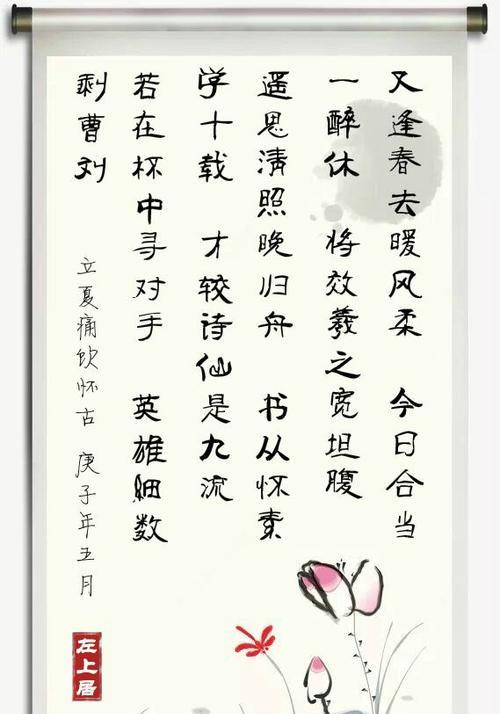 又逢春去暖风柔 今日合当
一醉休 将效羲之宽坦腹
遥思清照晚归舟 书从怀素
学十载 才较诗仙是九流
若在杯中寻对手 英雄细数
剩曹刘
立夏痛饮怀古 庚子年五月
左上居